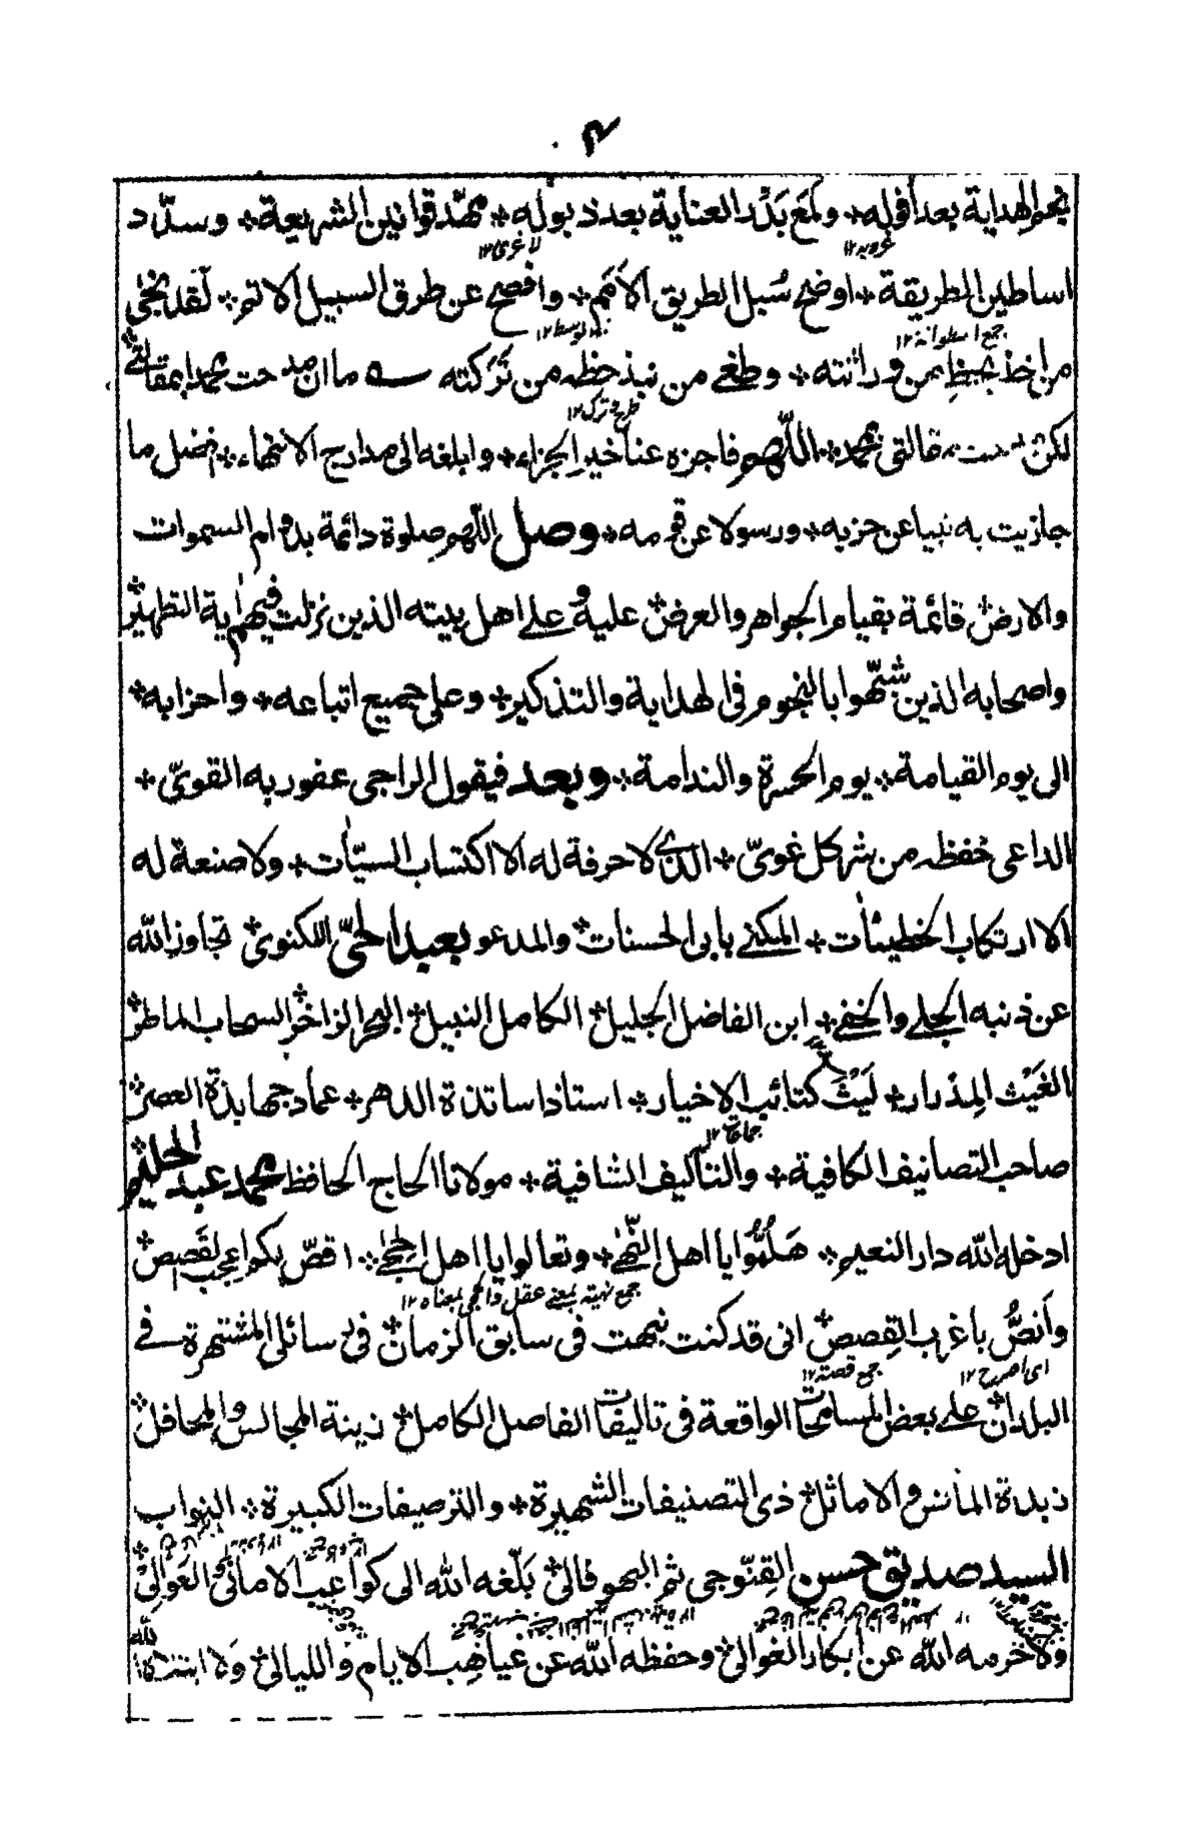 ۴
نجم الهداية بعد أفوله * ولمع بَدْر العناية بعد ذبوله * مهّد قوانين الشريعة * وسدّد
غروبه ١٢
اساطين الطريقة * اوضح سُبل الطريق الأَمَم * وافصح عن طرق السبيل الاتم * لقد نجى
جمع اسطوانة ١٢
من اخذ بحظٍ من وراثته * وطغے من نبذ حظه من تَرْكته ؎ ما ان مدحت محمدا بمقالتے
طرح وترك ١٢
لكن مدحت مقالتی بمحمد * اللّٰهم فاجزه عنا خير الجزاء * وابلغه الى مدارج الانتهاء * افضل ما
جازيت به نبيا عن حزبه * ورسولا عن قومه * وصل اللّٰهم صلوة دائمة بدوام السموات
والارض * قائمة بقيام الجواهر والعرض * عليه وعلے اهل بيته الذين نزلت فيهم اٰية التطهير *
واصحابه الذين شُبّهوا بالنجوم فى الهداية والتذكير * وعلى جميع اتباعه * واحزابه *
الى يوم القيامة * يوم الحسرة والندامة * وبعد فيقول الراجى عفو ربه القوىّ *
الداعى حفظه من شر كل غوىّ * الذى لا حرفة له الا اكتساب السيّاٰت * ولا صنعة له
الا ارتكاب الخطيئاٰت * المكنے بابى الحسنات * والمدعو بعبد الحىّ اللكنوى * تجاوز اللّٰه
عن ذنبه الجلے والخفے * ابن الفاضل الجليل * الكامل النبيل * البحر الزاخر * السحاب الماطر *
الغَيْث المِدْرار * لَيْث كتائب الاخيار * استاذ اساتذة الدهر * عماد جهابذة العصر *
جماعات ١٢
صاحب التصانيف الكافية * والتآليف الشافية * مولانا الحاج الحافظ محمد عبد الحليم *
ادخله اللّٰه دار النعيم * هَلُمُّوا يا اهل النُّهٰے * وتعالوا يا اهل الحِجٰى * اقصّ بكم اعجب القَصص *
جمع نهية بمعنے عقل والحجى بمعناه ١٢
وأنصُّ باغرب القِصص * انى قد كنت نبهت فى سابق الزمان * فى رسائلى المشتهرة فے
اى اصرح ١٢ جمع قصة ١٢
البلدان * علے بعض المسامحات الواقعة فى تاليفات الفاضل الكامل * زينة المجالس والمحافل *
زبدة الاماثل * ذى التصنيفات الشهيرة * والترصيفات الكبيرة * النواب
السيد صديق حسن القِنّوجى ثم البهوفالى * بَلّغه اللّٰه الى كواعب الامانى العَوالى *
ولا حرمه اللّٰه عن ابكار الغوالى * وحفظه اللّٰه عن غياهب الايام والليالى * ولا ابتلاه اللّٰه